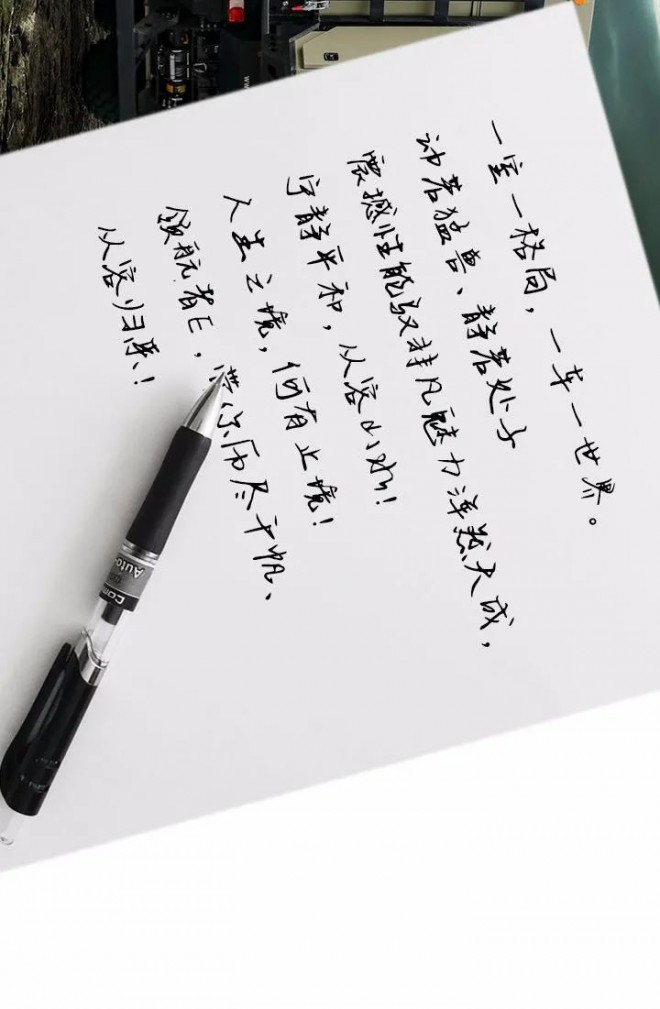 一室一格局，一车一世界。
动若猛兽、静若处子
震撼性能驭非凡魅力浑然天成，
宁静平和，从容山水！
人生之境，何有止境！
领航者E，带你历尽千帆、
从容归来！
www